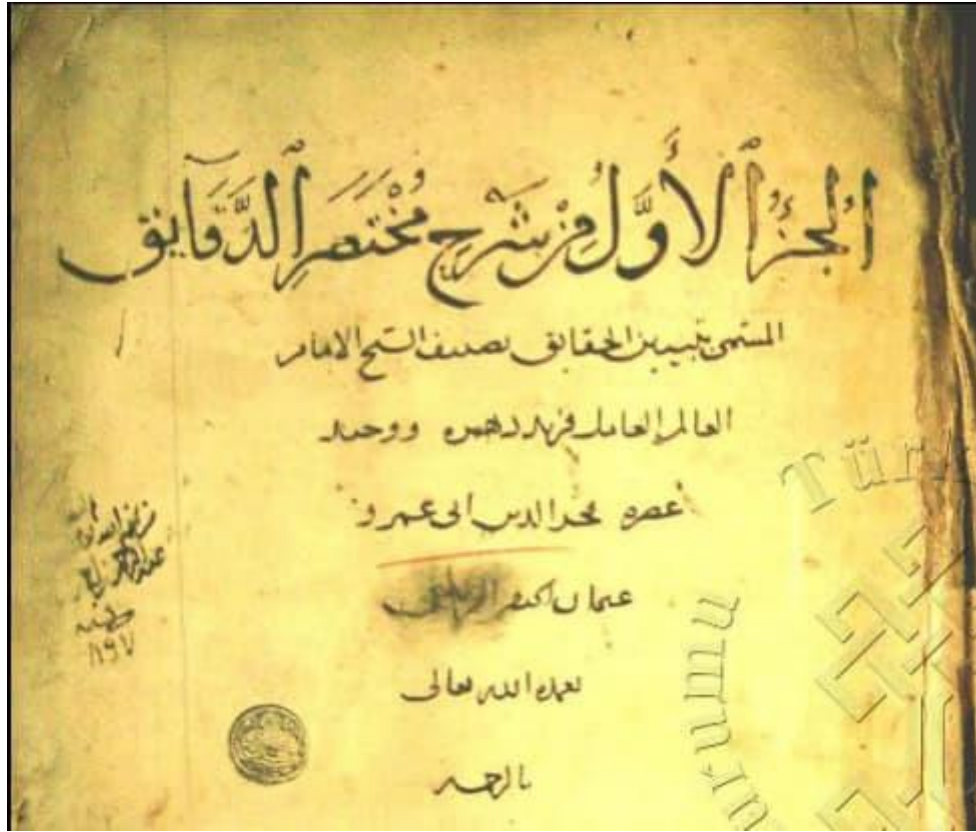 الجُزْءُ الأَوَّلُ مِنْ شَرْحِ مُخْتَصَرِ الدَّقَايِق
المسمى بتبيين الحقايق تصنيف الشيخ الامام
العالم العامل فريد دهره ووحيد
عصره فخر الدين ابى عمرو
عثمان الزيلعى
تغمده الله تعالى
بالرحمه
١١٩٧
Türk